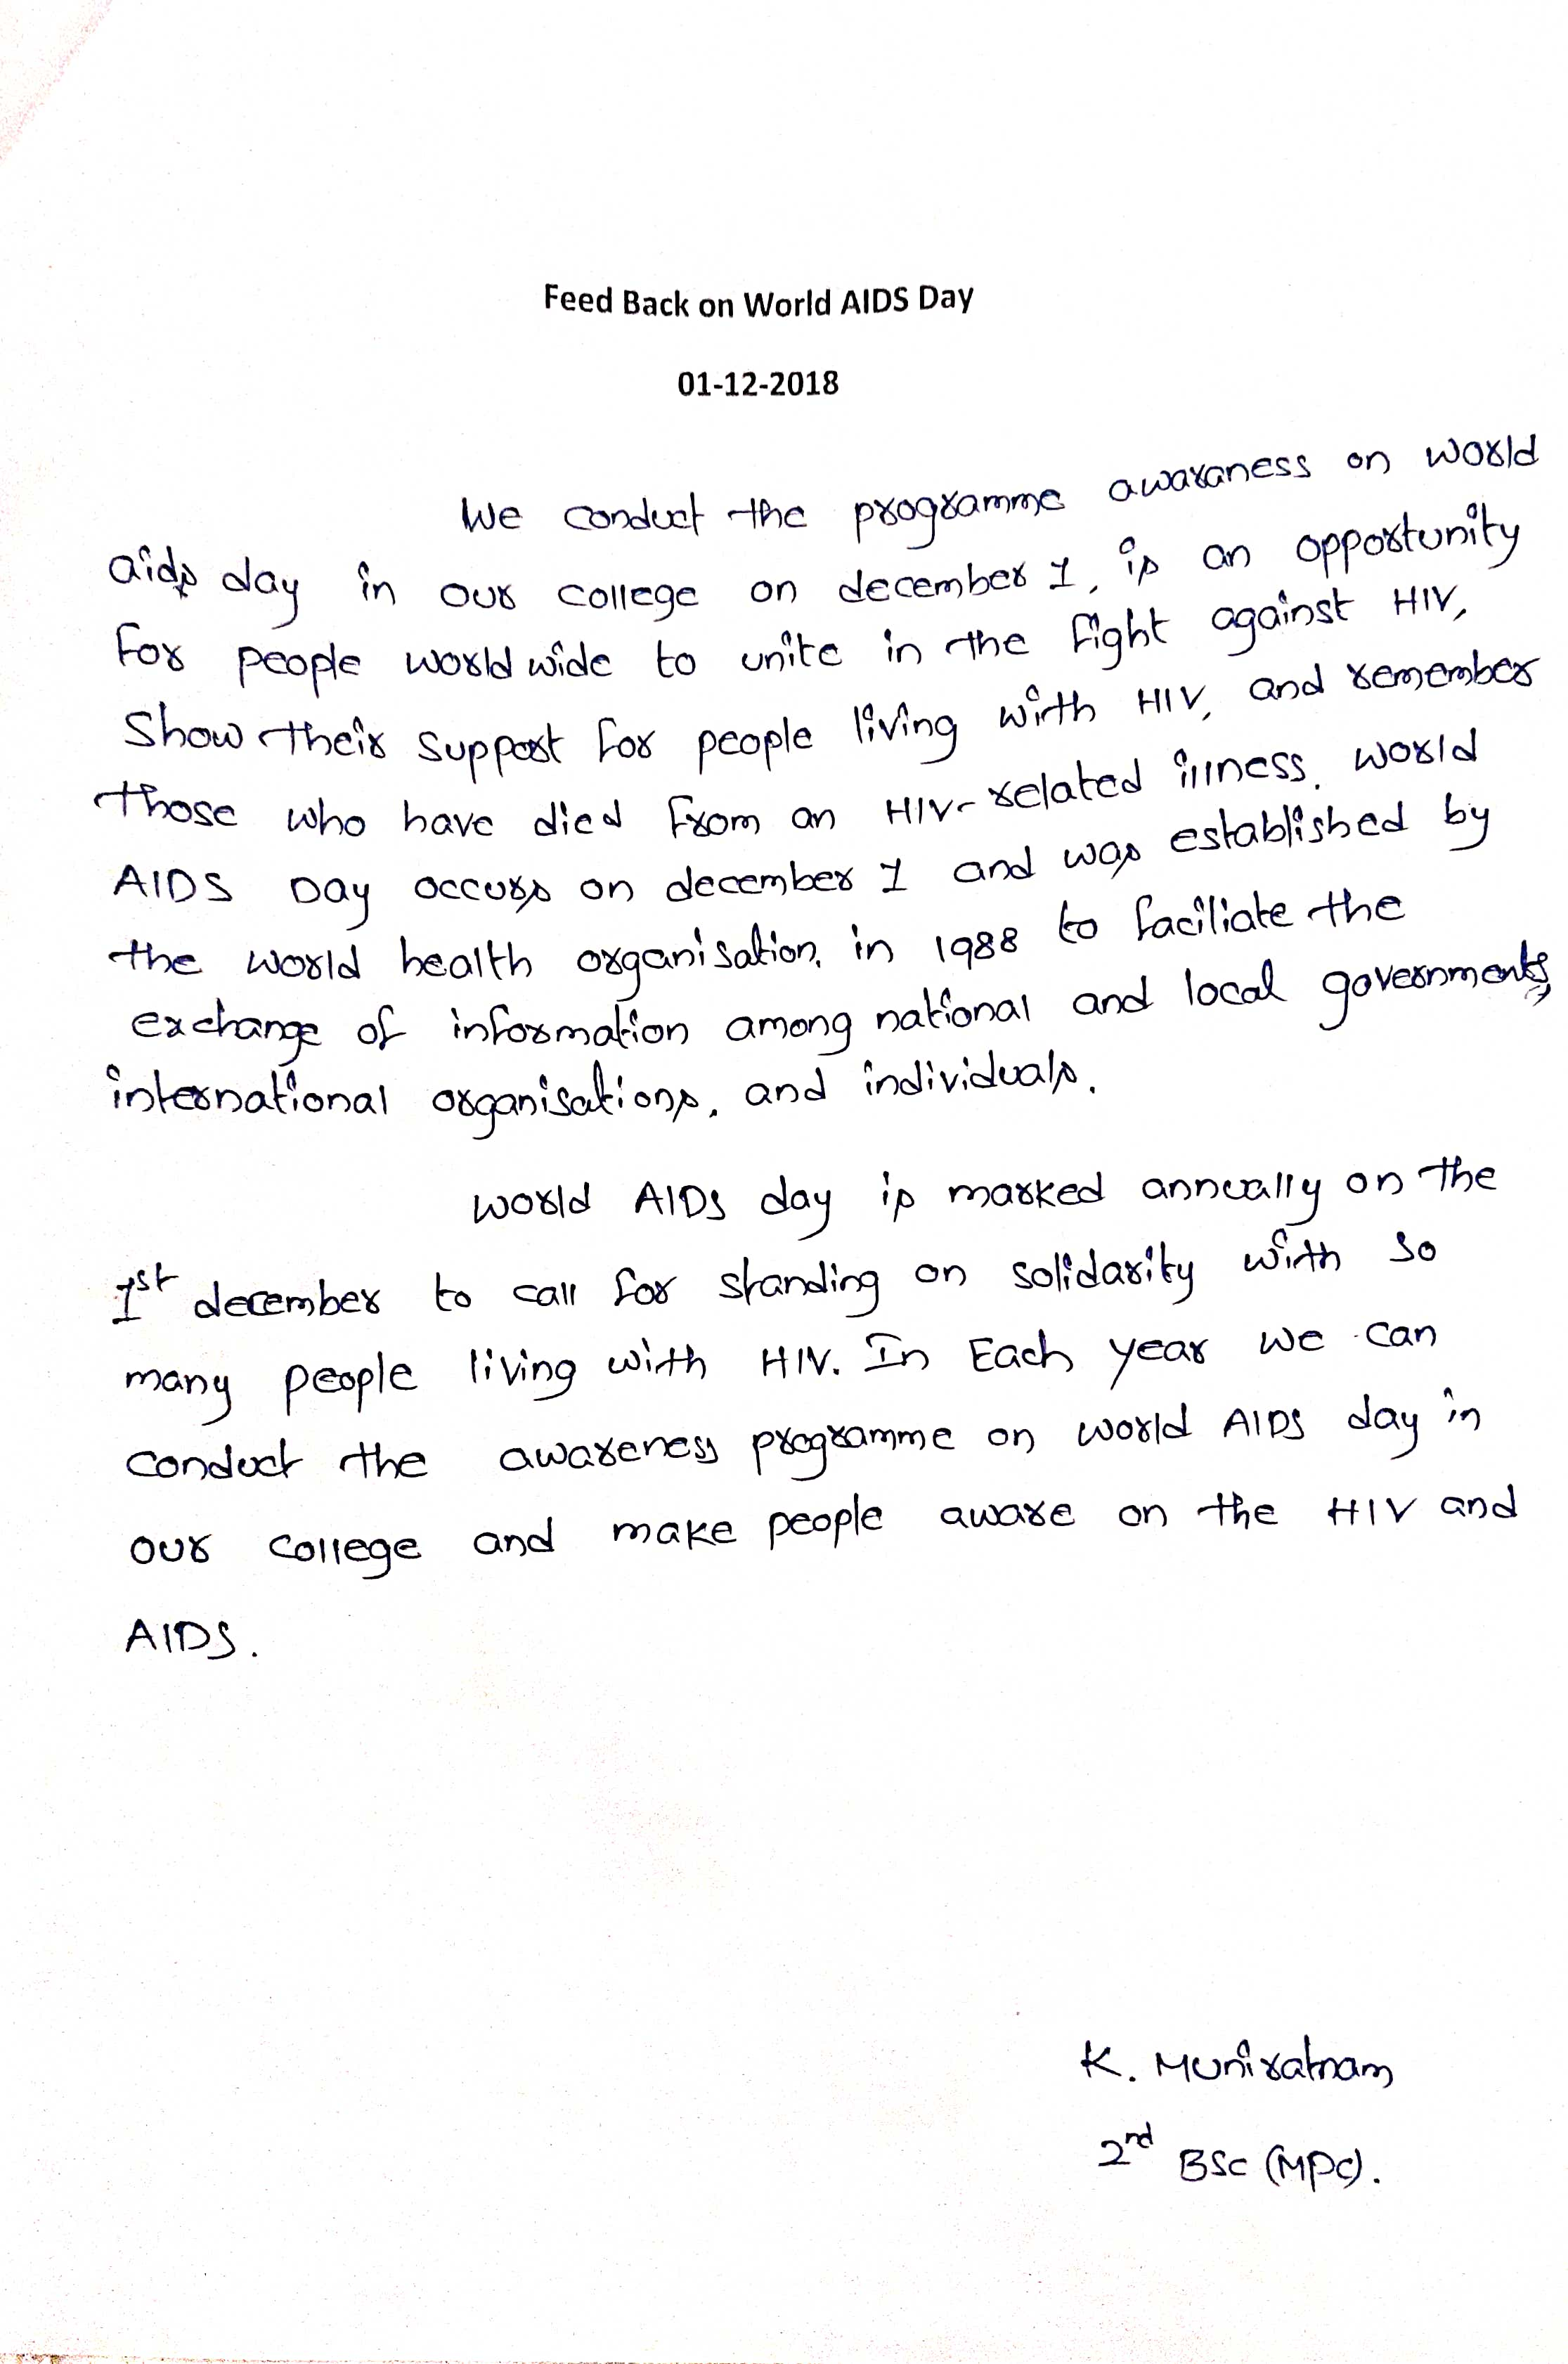 Feed Back on World AIDS Day
01-12-2018
We conduct the programme awaraness on world
aids day in our college on december 1, is an opportunity
for people world wide to unite in the fight against HIV,
Show their support for people living with HIV, and remember
those who have died from an HIV-related illness. world
AIDS Day occurs on december 1 and was established by
the world health organisation, in 1988 to faciliate the
exchange of information among national and local governments,
international organisations, and individuals.
World AIDs day is marked annually on the
1st december to call for standing on solidarity with so
many people living with HIV. In Each year we can
conduct the awareness programme on world AIDS day in
our college and make people aware on the HIV and
AIDS.
K. Muniratnam
2nd BSc (MPC).